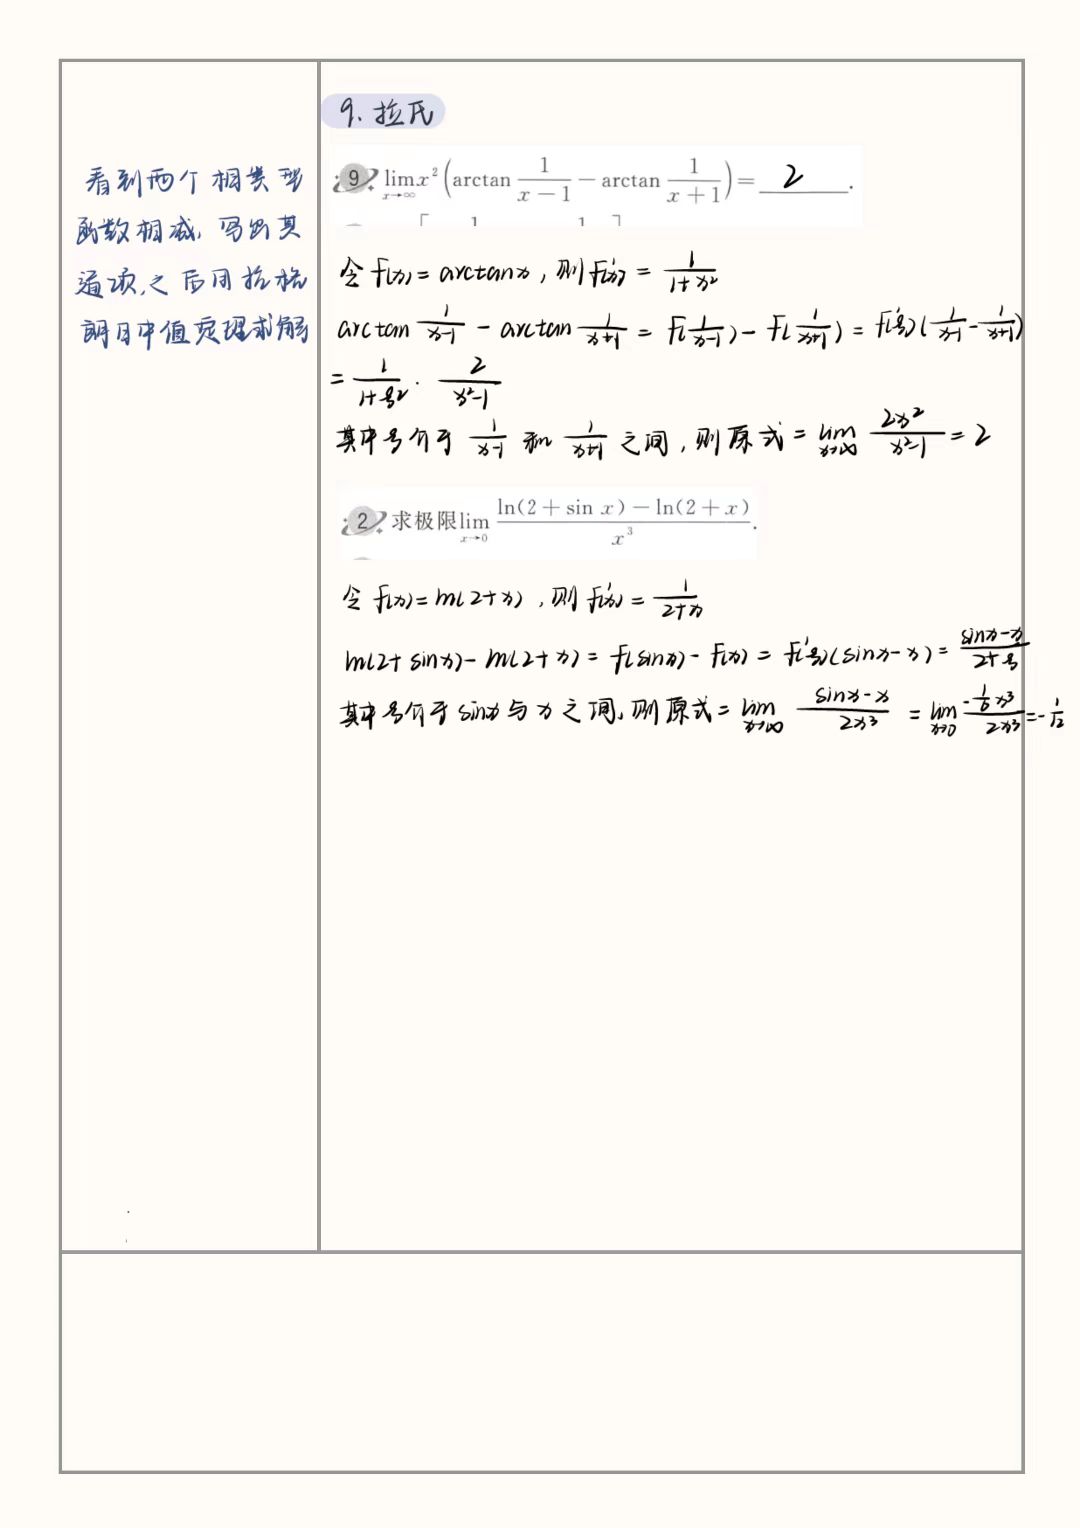 9. 拉氏
看到两个相类型
函数相减,写出其
通项,之后用拉格
朗日中值定理求解
9 lim x→∞ x²(arctan 1/(x−1) − arctan 1/(x+1)) = 2.
令 f(x) = arctanx, 则 f'(x) = 1/(1+x²)
arctan 1/(x-1) - arctan 1/(x+1) = f(1/(x-1)) - f(1/(x+1)) = f'(ξ)(1/(x-1) - 1/(x+1))
= 1/(1+ξ²) · 2/(x²-1)
其中ξ介于 1/(x-1) 和 1/(x+1) 之间, 则原式 = lim x→∞ 2x²/(x²-1) = 2
2 求极限 lim x→0 (ln(2+sin x)−ln(2+x))/x³.
令 f(x) = ln(2+x), 则 f'(x) = 1/(2+x)
ln(2+sinx) - ln(2+x) = f(sinx) - f(x) = f'(ξ)(sinx-x) = (sinx-x)/(2+ξ)
其中ξ介于 sinx 与 x 之间, 则原式 = lim x→∞ (sinx-x)/(2x³) = lim x→0 (-1/6 x³)/(2x³) = -1/12